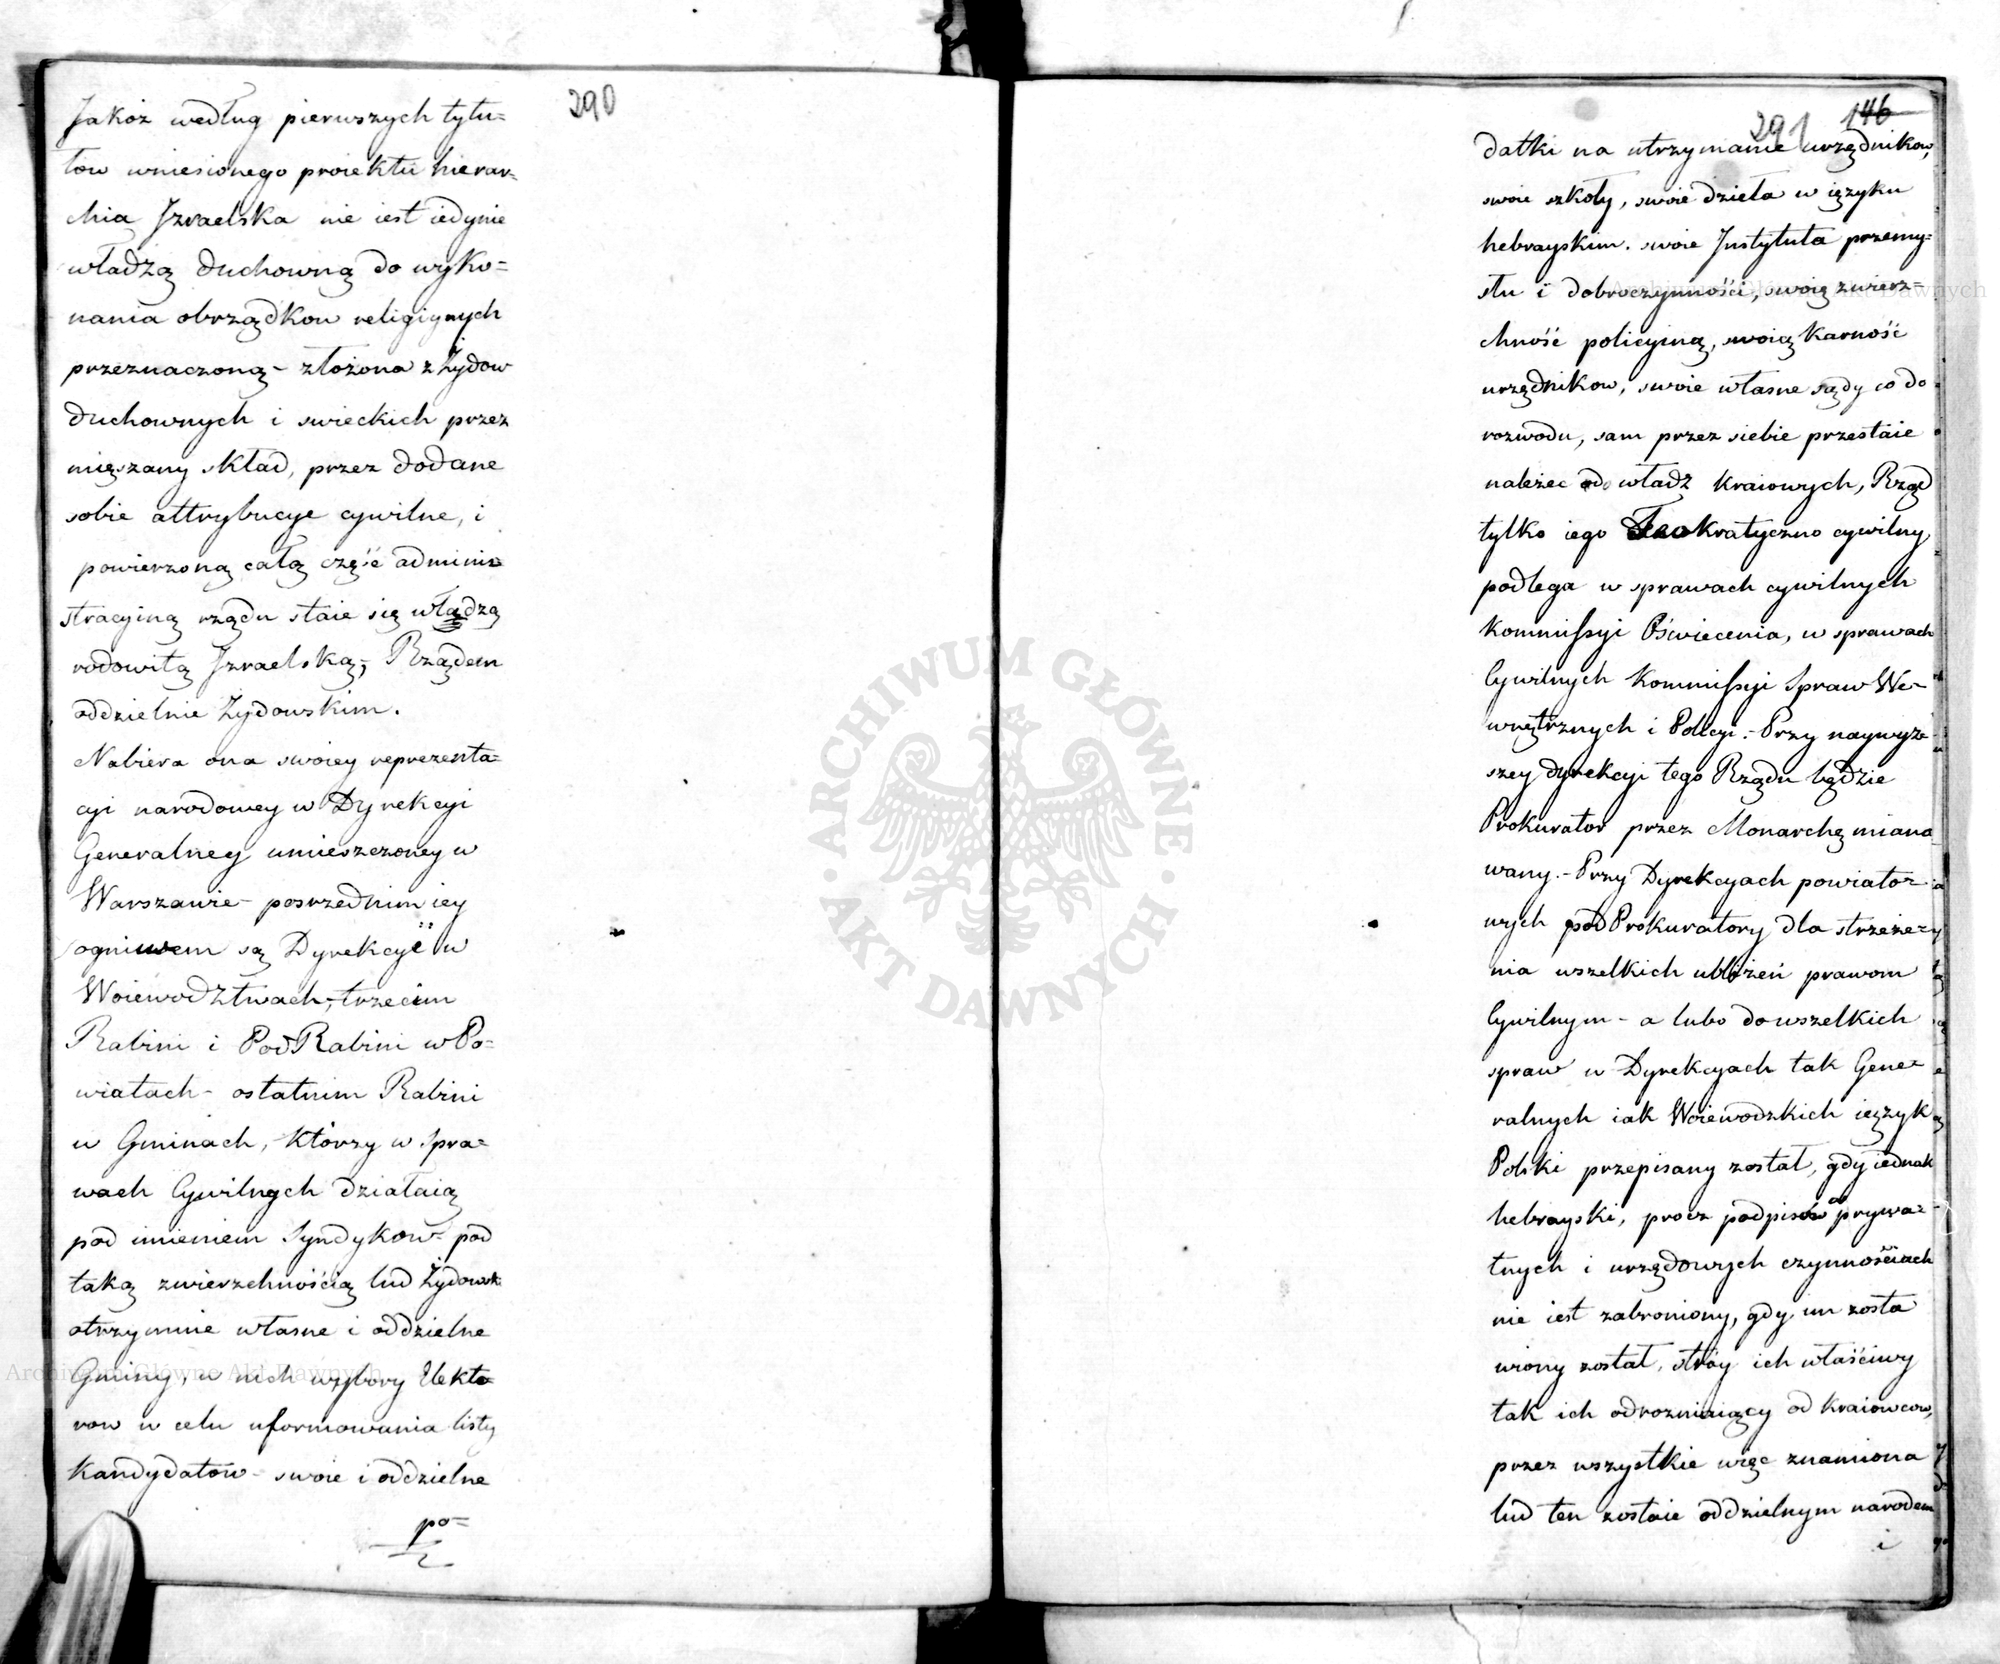 290
Jakoż według pierwszych tytu=
łow wniesionego proiektu hierar=
chia Izraelska nie iest iedynie
władzą duchowną do wyko=
nania obrządkow religiynych
przeznaczoną – złożona z Żydow
duchownych i swieckich przez
mięszany skład, przez dodane
sobie attrybucye cywilne, i
powierzoną całą część admini=
stracyiną rządu staie się władzą
rodowitą Izraelską, Rządem
oddzielnie Żydowskim.
Nabiera ona swoiey reprezenta=
cyi narodowey w Dyrekcyi
Generalney umieszczoney w
Warszawie – posrzednim iey
ogniwem są Dyrekcye w
Woiewodztwach, trzecim
Rabini i PodRabini w Po=
wiatach – ostatnim Rabini
w Gminach, którzy w Spra=
wach Cywilnych działaią
pod imieniem Syndykow – pod
taką zwierzchnością lud Żydowsk
otrzymuie własne i oddzielne
Gminy, w nich wybory Elekto=
row w celu uformowania listy
Kandydatow – swoie i oddzielne
po=
291 146
datki na utrzymanie urzędnikow,
swoie szkoły, swoie dzieła w ięzyku
hebrayskim. swoie Instytuta przemy=
słu i dobroczynności, swoię zwierz=
chność policyiną, swoią karność
urzędnikow, swoie własne sądy co do
rozwodu, sam przez siebie przestaie
należec do władz kraiowych, Rząd
tylko iego Teokratyczno cywilny
podlega w sprawach cywilnych
Kommissyi Oświecenia, w sprawach
Cywilnych Kommissyi Spraw We=
wnętrznych i Policyi. – Przy naywyż=
szey dyrekcyi tego Rządu będzie
Prokurator przez Monarchę miano
wany. – Przy Dyrekcyach powiato=
wych podProkuratory dla strzeże=
nia wszelkich ubliżeń prawom
Cywilnym – a lubo do wszelkich
spraw w Dyrekcyach tak Gene=
ralnych iak Woiewodzkich ięzyk
Polski przepisany został, gdy iednak
hebrayski, procz podpisów prywa=
tnych i urzędowych czynnościach
nie iest zabroniony, gdy im zosta
wiony został, stróy ich właściwy
tak ich odrozniaiący od kraiowcow,
przez wszystkie więc znamiona
lud ten zostaie oddzielnym narodem
i
ARCHIWUM GŁÓWNE AKT DAWNYCH
Archiwum Główne Akt Dawnych
Archiwum Główne Akt Dawnych